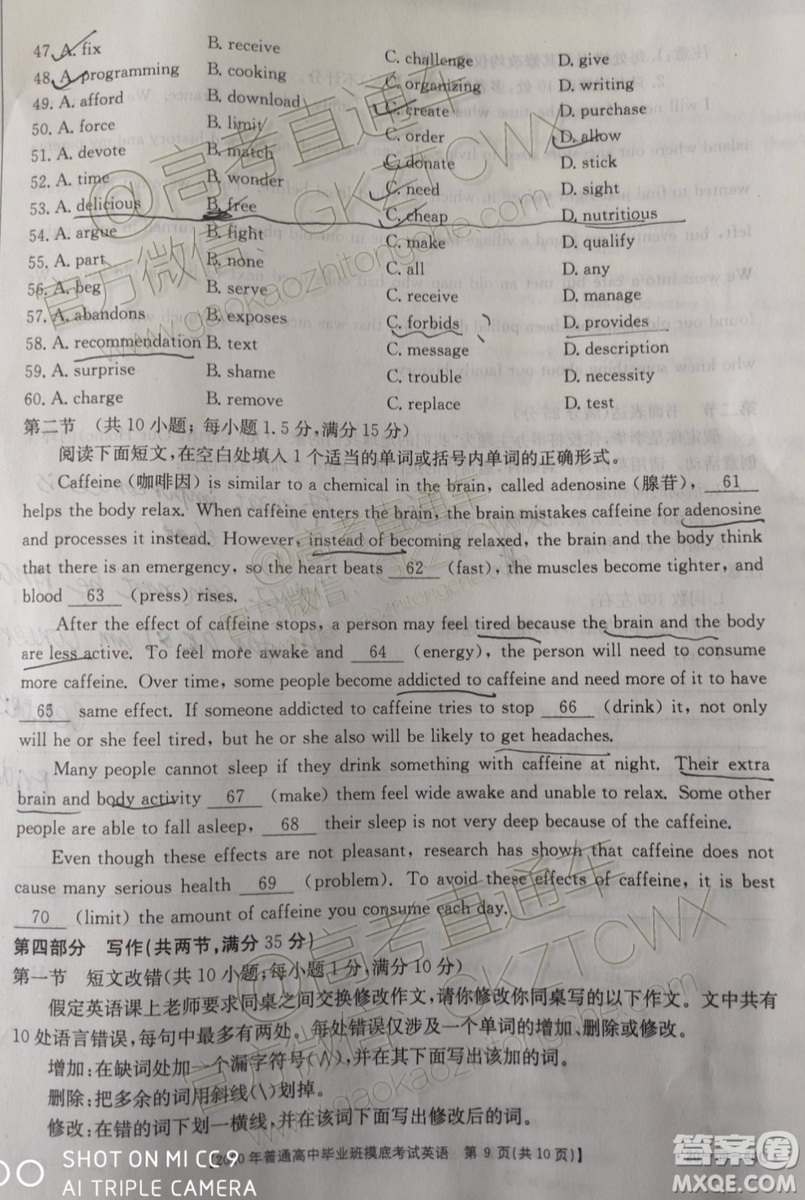 47. A. fix B. receive C. challenge D. give
48. A. programming B. cooking C. organizing D. writing
49. A. afford B. download C. create D. purchase
50. A. force B. limit C. order D. allow
51. A. devote B. match C. donate D. stick
52. A. time B. wonder C. need D. sight
53. A. delicious B. free C. cheap D. nutritious
54. A. argue B. fight C. make D. qualify
55. A. part B. none C. all D. any
56. A. beg B. serve C. receive D. manage
57. A. abandons B. exposes C. forbids D. provides
58. A. recommendation B. text C. message D. description
59. A. surprise B. shame C. trouble D. necessity
60. A. charge B. remove C. replace D. test
第二节 (共 10 小题；每小题 1.5 分，满分 15 分)
阅读下面短文，在空白处填入 1 个适当的单词或括号内单词的正确形式。
Caffeine (咖啡因) is similar to a chemical in the brain, called adenosine (腺苷), 61
helps the body relax. When caffeine enters the brain, the brain mistakes caffeine for adenosine
and processes it instead. However, instead of becoming relaxed, the brain and the body think
that there is an emergency, so the heart beats 62 (fast), the muscles become tighter, and
blood 63 (press) rises.
After the effect of caffeine stops, a person may feel tired because the brain and the body
are less active. To feel more awake and 64 (energy), the person will need to consume
more caffeine. Over time, some people become addicted to caffeine and need more of it to have
65 same effect. If someone addicted to caffeine tries to stop 66 (drink) it, not only
will he or she feel tired, but he or she also will be likely to get headaches.
Many people cannot sleep if they drink something with caffeine at night. Their extra
brain and body activity 67 (make) them feel wide awake and unable to relax. Some other
people are able to fall asleep, 68 their sleep is not very deep because of the caffeine.
Even though these effects are not pleasant, research has shown that caffeine does not
cause many serious health 69 (problem). To avoid these effects of caffeine, it is best
70 (limit) the amount of caffeine you consume each day.
第四部分 写作(共两节，满分 35 分)
第一节 短文改错(共 10 小题；每小题 1 分，满分 10 分)
假定英语课上老师要求同桌之间交换修改作文，请你修改你同桌写的以下作文。文中共有
10 处语言错误，每句中最多有两处。每处错误仅涉及一个单词的增加、删除或修改。
增加：在缺词处加一个漏字符号(∧)，并在其下面写出该加的词。
删除：把多余的词用斜线(\)划掉。
修改：在错的词下划一横线，并在该词下面写出修改后的词。
年普通高中毕业班摸底考试英语 第 9 页(共 10 页)】
SHOT ON MI CC9
AI TRIPLE CAMERA
@高考直通车
GKZTCWX
官方微信
www.gaokaozhitongche.com
答案圈
MXQE.COM